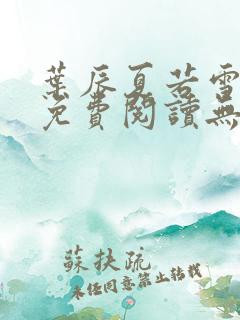 葉辰夏若雪
免費閱讀無
蘇扶疏
未經同意禁止轉載